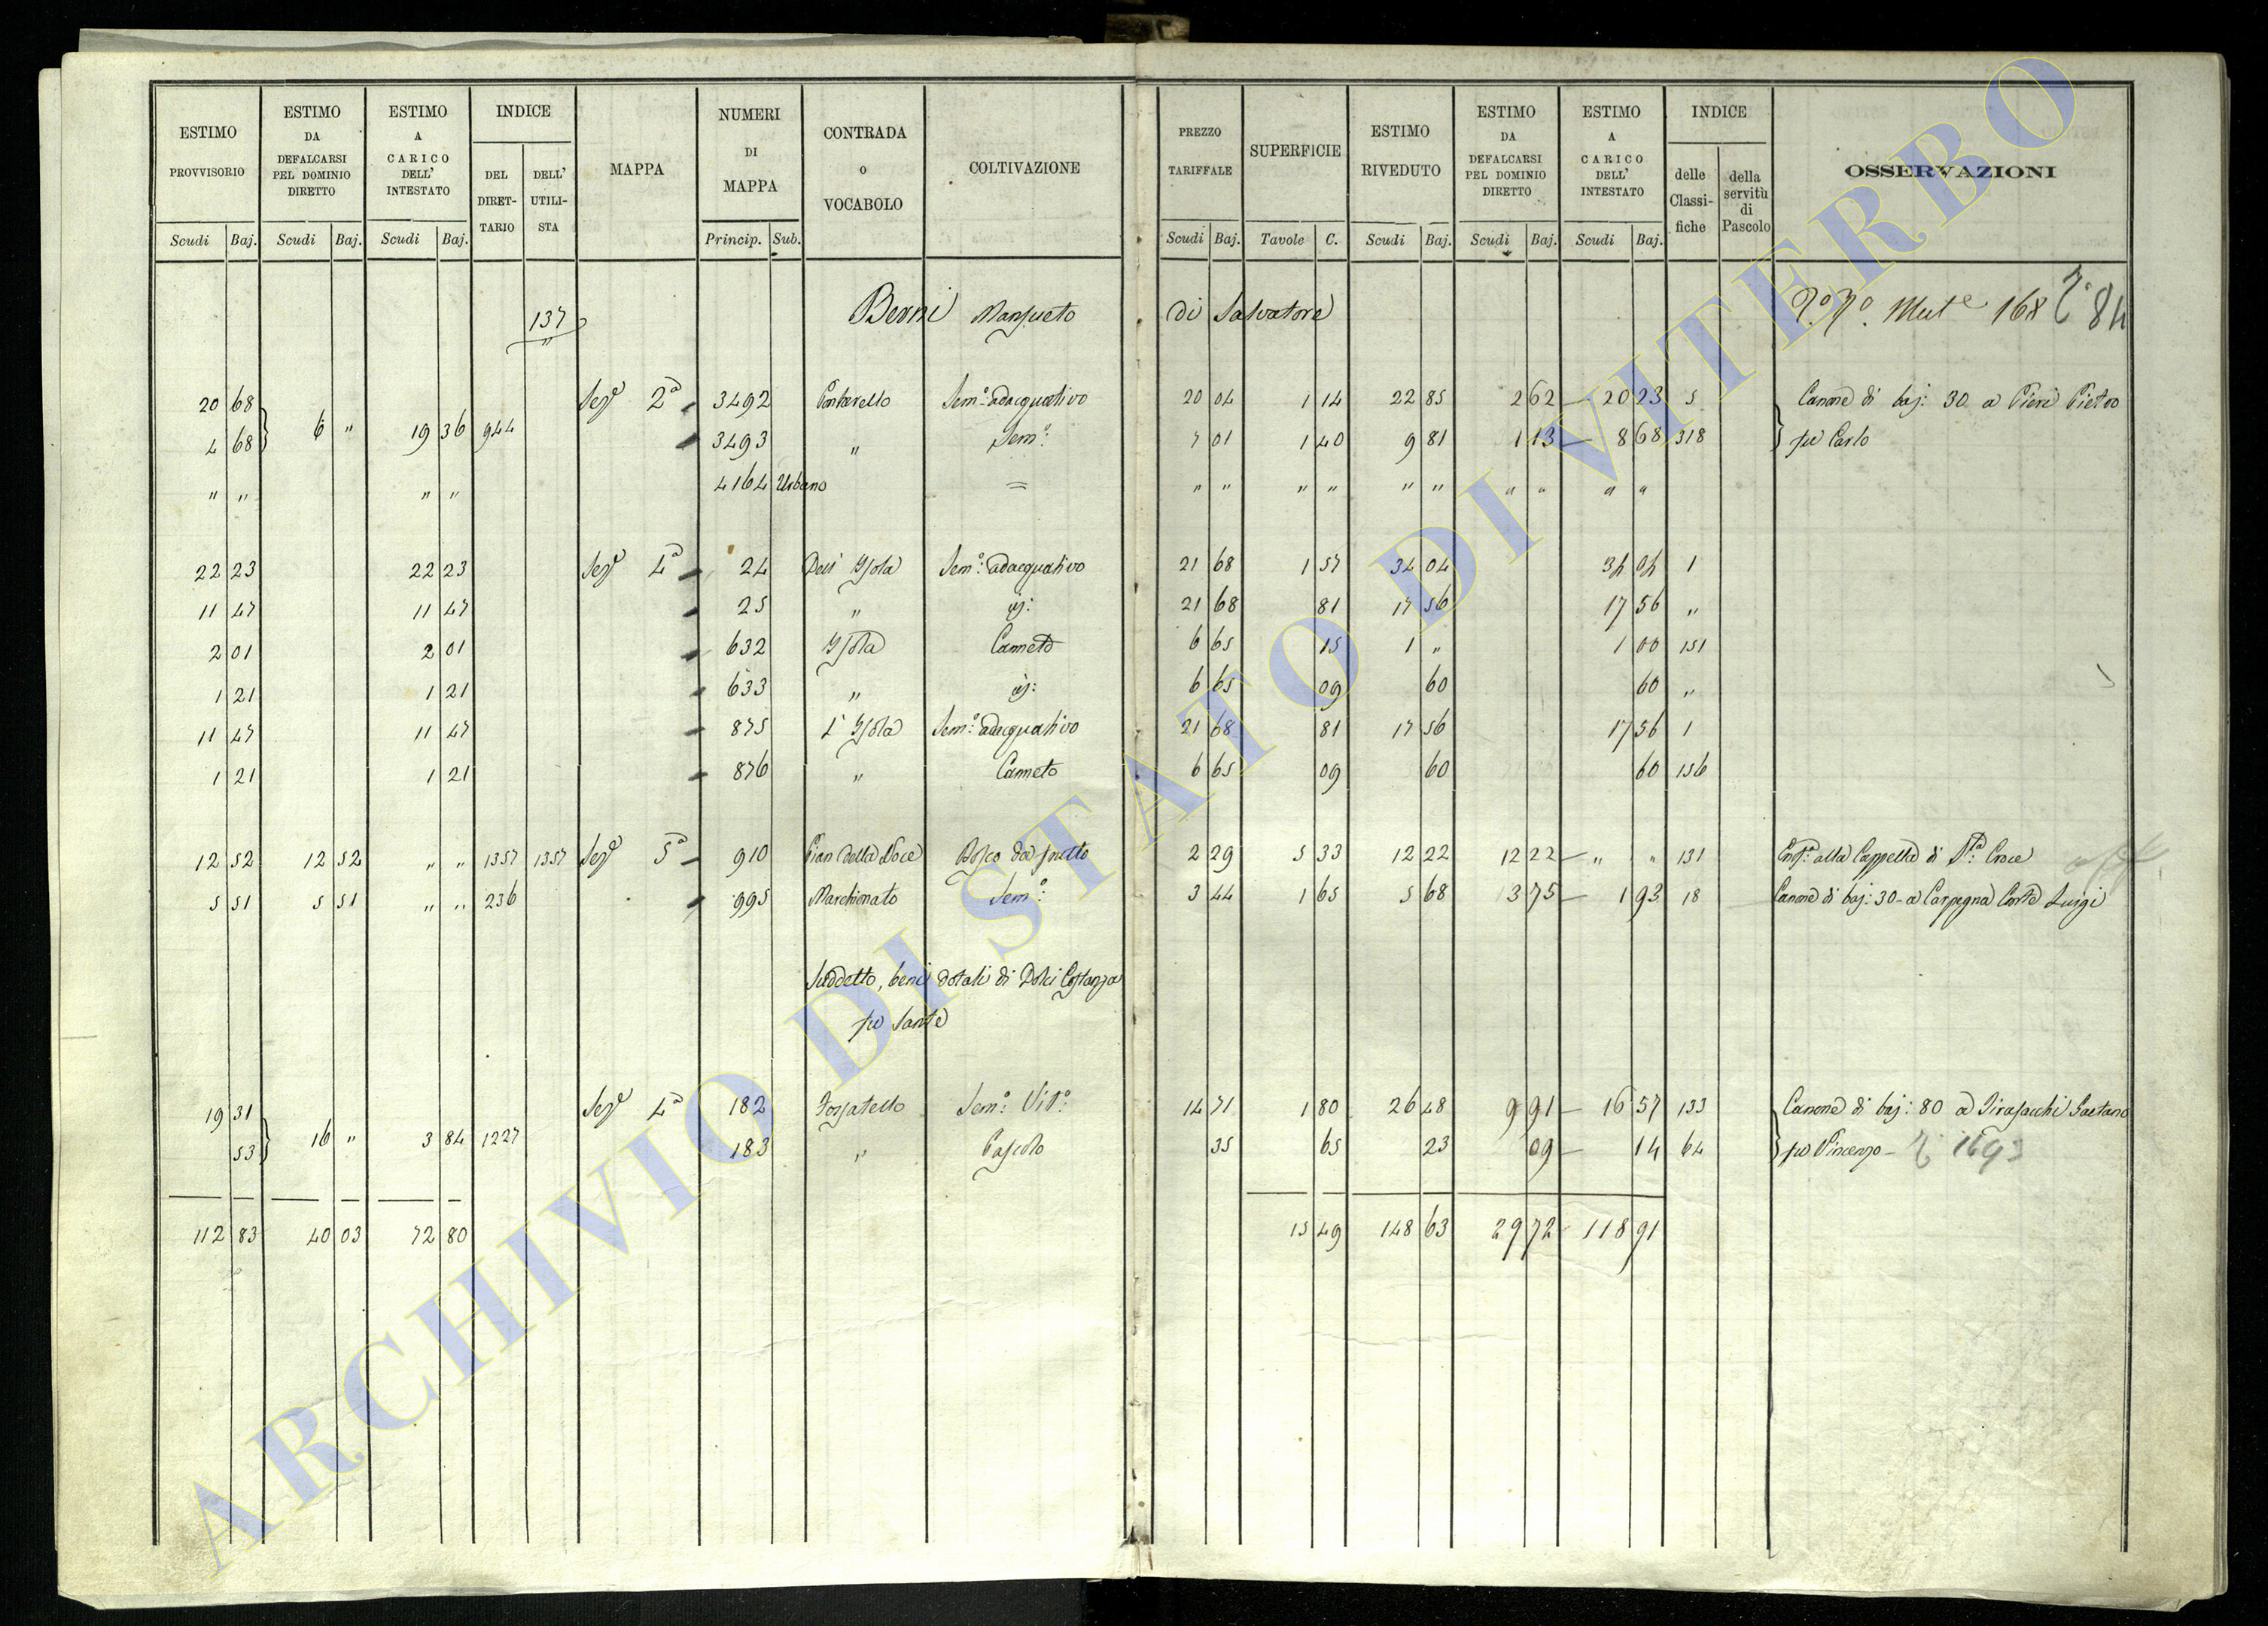 ESTIMO PROVVISORIO Scudi Baj.
ESTIMO DA DEFALCARSI PEL DOMINIO DIRETTO Scudi Baj.
ESTIMO A CARICO DELL' INTESTATO Scudi Baj.
INDICE DEL DIRET-TARIO DELL' UTILI-STA
MAPPA
NUMERI DI MAPPA Princip. Sub.
CONTRADA o VOCABOLO
COLTIVAZIONE
PREZZO TARIFFALE Scudi Baj.
SUPERFICIE Tavole C.
ESTIMO RIVEDUTO Scudi Baj.
ESTIMO DA DEFALCARSI PEL DOMINIO DIRETTO Scudi Baj.
ESTIMO A CARICO DELL' INTESTATO Scudi Baj.
INDICE delle Classi-fiche della servitù di Pascolo
OSSERVAZIONI
137 Berni Mansueto di Salvatore Mut.e 168 84
20 68 Sez.e 2a 3492 Sem.o adacquativo 20 04 1 14 22 85 2 62 20 23 5 Canone di baj: 30 a Pieri Pietro
6 " 19 36 944
4 68 3493 " Sem.o 7 01 1 40 9 81 1 13 8 68 318 fu Carlo
" " " " 4164 Urbano = " " " " " " " " " "
22 23 22 23 Sez.e 4a 24 Dell' Isola Sem.o adacquativo 21 68 1 57 34 04 34 04 1
11 47 11 47 25 " id: 21 68 81 17 56 17 56 "
2 01 2 01 632 Isola Canneto 6 65 15 1 " 1 00 151
1 21 1 21 633 " id: 6 65 09 60 60 "
11 47 11 47 875 L' Isola Sem.o adacquativo 21 68 81 17 56 17 56 1
1 21 1 21 876 " Canneto 6 65 09 60 60 156
12 52 12 52 " " 1357 1357 Sez.e 5a 910 Pian della Noce Bosco da frutto 2 29 5 33 12 22 12 22 " " 131 alla Cappella di S.ta Croce
5 51 5 51 " " 236 995 Marchionato Sem.o 3 44 1 65 5 68 3 75 1 93 18 Canone di baj: 30 a Carpegna Conte Luigi
Suddetto, beni dotali di Dolci Costanza
fu Sante
19 31 Sez.e 4a 182 Fossatello Sem.o Vit.o 14 71 1 80 26 48 9 91 16 57 133 Canone di baj: 80 a Tirasacchi Gaetano
16 " 3 84 1227
53 183 " Pascolo 35 65 23 09 14 64 fu Vincenzo 1693
112 83 40 03 72 80 15 49 148 63 29 72 118 91
ARCHIVIO DI STATO DI VITERBO